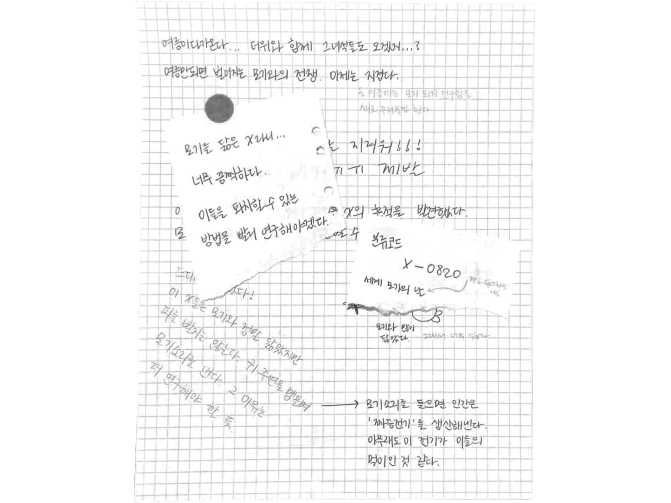 여름이 다가온다... 더위와 함께 그녀석들도 오겠지...?
여름만되면 벌어지는 모기와의 전쟁. 이제는 지겹다.
모기를 닮은 X라니...
너무 끔찍하다..
이들을 퇴치할 수 있는
방법을 빨리 연구해야겠다.
지겨워!!!
제발
X의 흔적을 발견했다.
분류코드
X-0820
세계 모기의 날
모기와 많이
닮았다.
이 X들은 모기와 정말 닮았지만
피를 빨지는 않는다. 귀 주변을 맴돌며
모기소리를 낸다. 그 이유는
더 연구해야 할 듯
모기소리를 들으면 인간은
'짜증전기'를 생산해낸다.
아무래도 이 전기가 이들의
먹이인 것 같다.